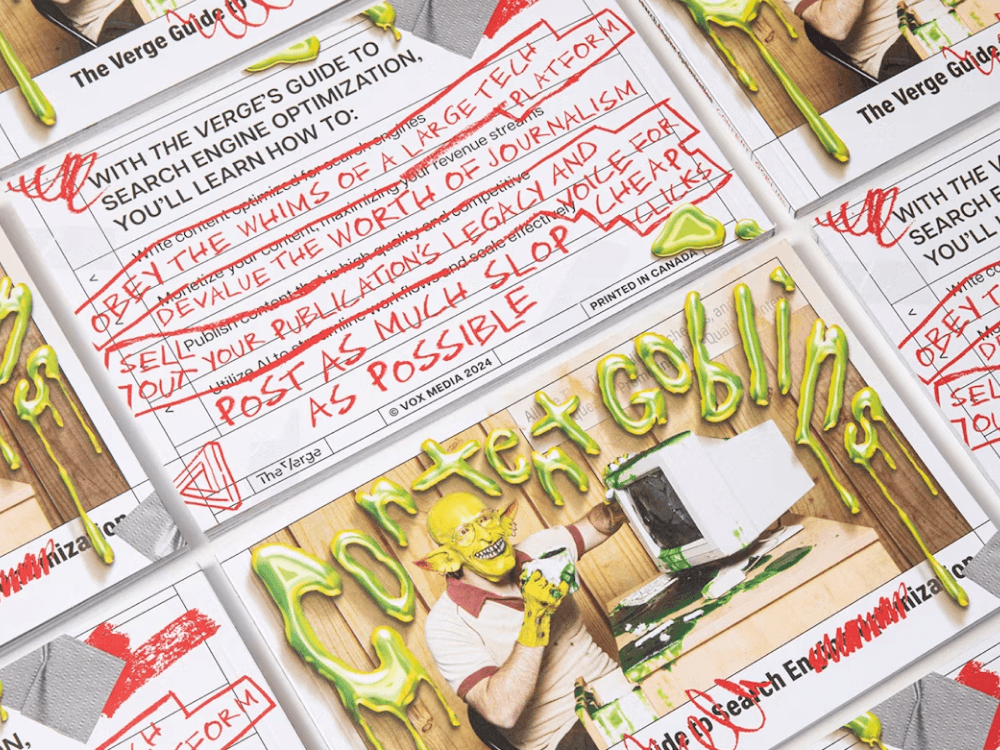 The Verge Guide to
The Verge Guide
WITH THE VERGE'S GUIDE TO
SEARCH ENGINE OPTIMIZATION,
YOU'LL LEARN HOW TO:
Write content optimized for search engines
OBEY THE WHIMS OF A LARGE TECH PLATFORM
Monetize your content, maximizing your revenue streams
DEVALUE THE WORTH OF JOURNALISM
Publish content that is high quality and competitive
SELL OUT YOUR PUBLICATION'S LEGACY AND VOICE FOR CHEAP CLICKS
Utilize AI to streamline workflows and scale effectively
POST AS MUCH SLOP
AS POSSIBLE
PRINTED IN CANADA
© VOX MEDIA 2024
The Verge
Content Goblins
ide to Search En
niza
WITH THE V
SEARCH EN
YOU'LL
Write
OBEY T
SEL
nization
FORM